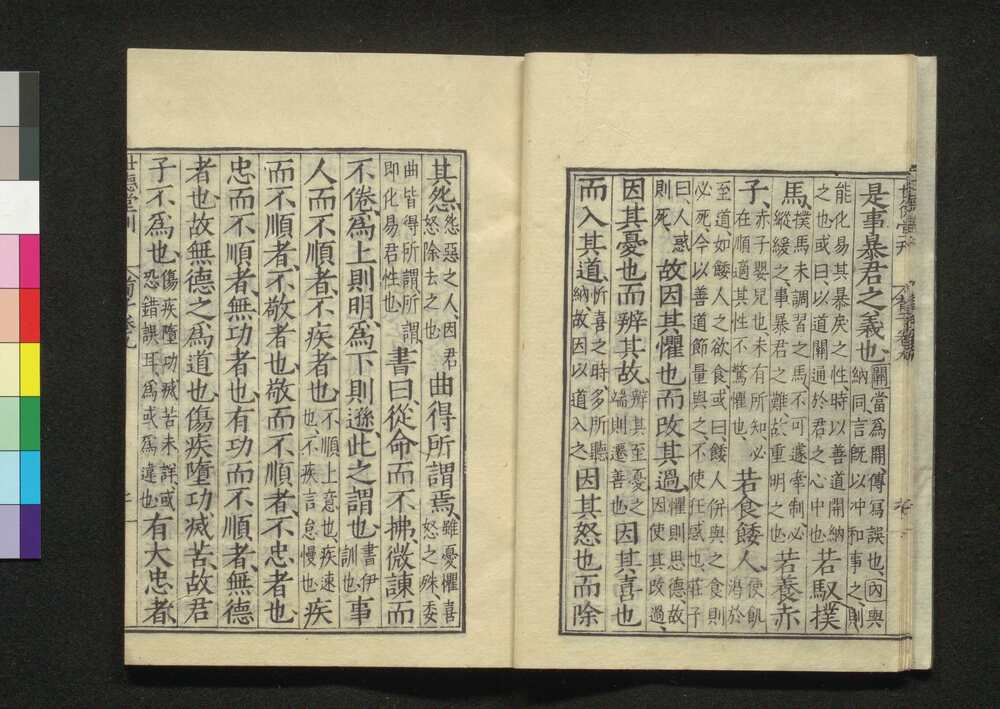 世德堂刊
是事暴君之義也、關當爲開、傳寫誤也、內與
納同、言旣以冲和事之、則
能化易其暴戾之性、時以善道開納
之也、或曰、以道關通於君之心中也、若馭撲
馬、撲馬未調習之馬、不可遽牽制、必
縱緩之、事暴君之難、故重明之也、若養赤
子、赤子嬰兒也、未有所知、必
在順適其性不驚懼也、若食餧人、使飢
渴於
至道、如餧人之欲食、或曰餧人併與之食則
必死、今以善道節量與之、不使狂惑也、莊子
曰、人惑
則死、故因其懼也、而改其過、懼則思德故
因使其改過、
因其憂也、而辨其故、辨其至憂之
端則遷善也、因其喜也
而入其道、忻喜之時、多所聽
納、故因以道入之、因其怒也、而除
其怨、怨惡之人、因君
怒除去之也、曲得所謂焉、雖憂懼喜
怒之殊、委
曲皆得所謂、所謂
即化易君性也、書曰、從命而不拂、微諫而
不倦、爲上則明、爲下則遜、此之謂也、書伊
訓也、事
人而不順者、不疾者也、不順上意也、疾速
也、不疾言怠慢也、疾
而不順者、不敬者也、敬而不順者、不忠者也、
忠而不順者、無功者也、有功而不順者、無德
者也、故無德之爲道也、傷疾墮功滅苦、故君
子不爲也、傷疾墮功滅苦未詳、或
恐錯誤耳、爲或爲違也、有大忠者、
世德堂刊